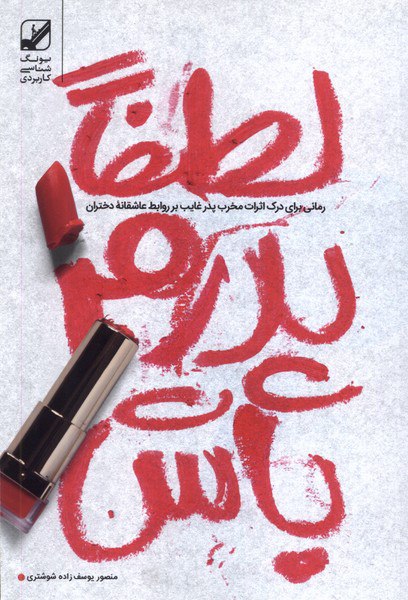 یونگ
شناسی
کاربردی
لطفاً
رمانی برای درک اثرات مخرب پدر غایب بر روابط عاشقانهٔ دختران
پدرم
باش
منصور یوسف زاده شوشتری